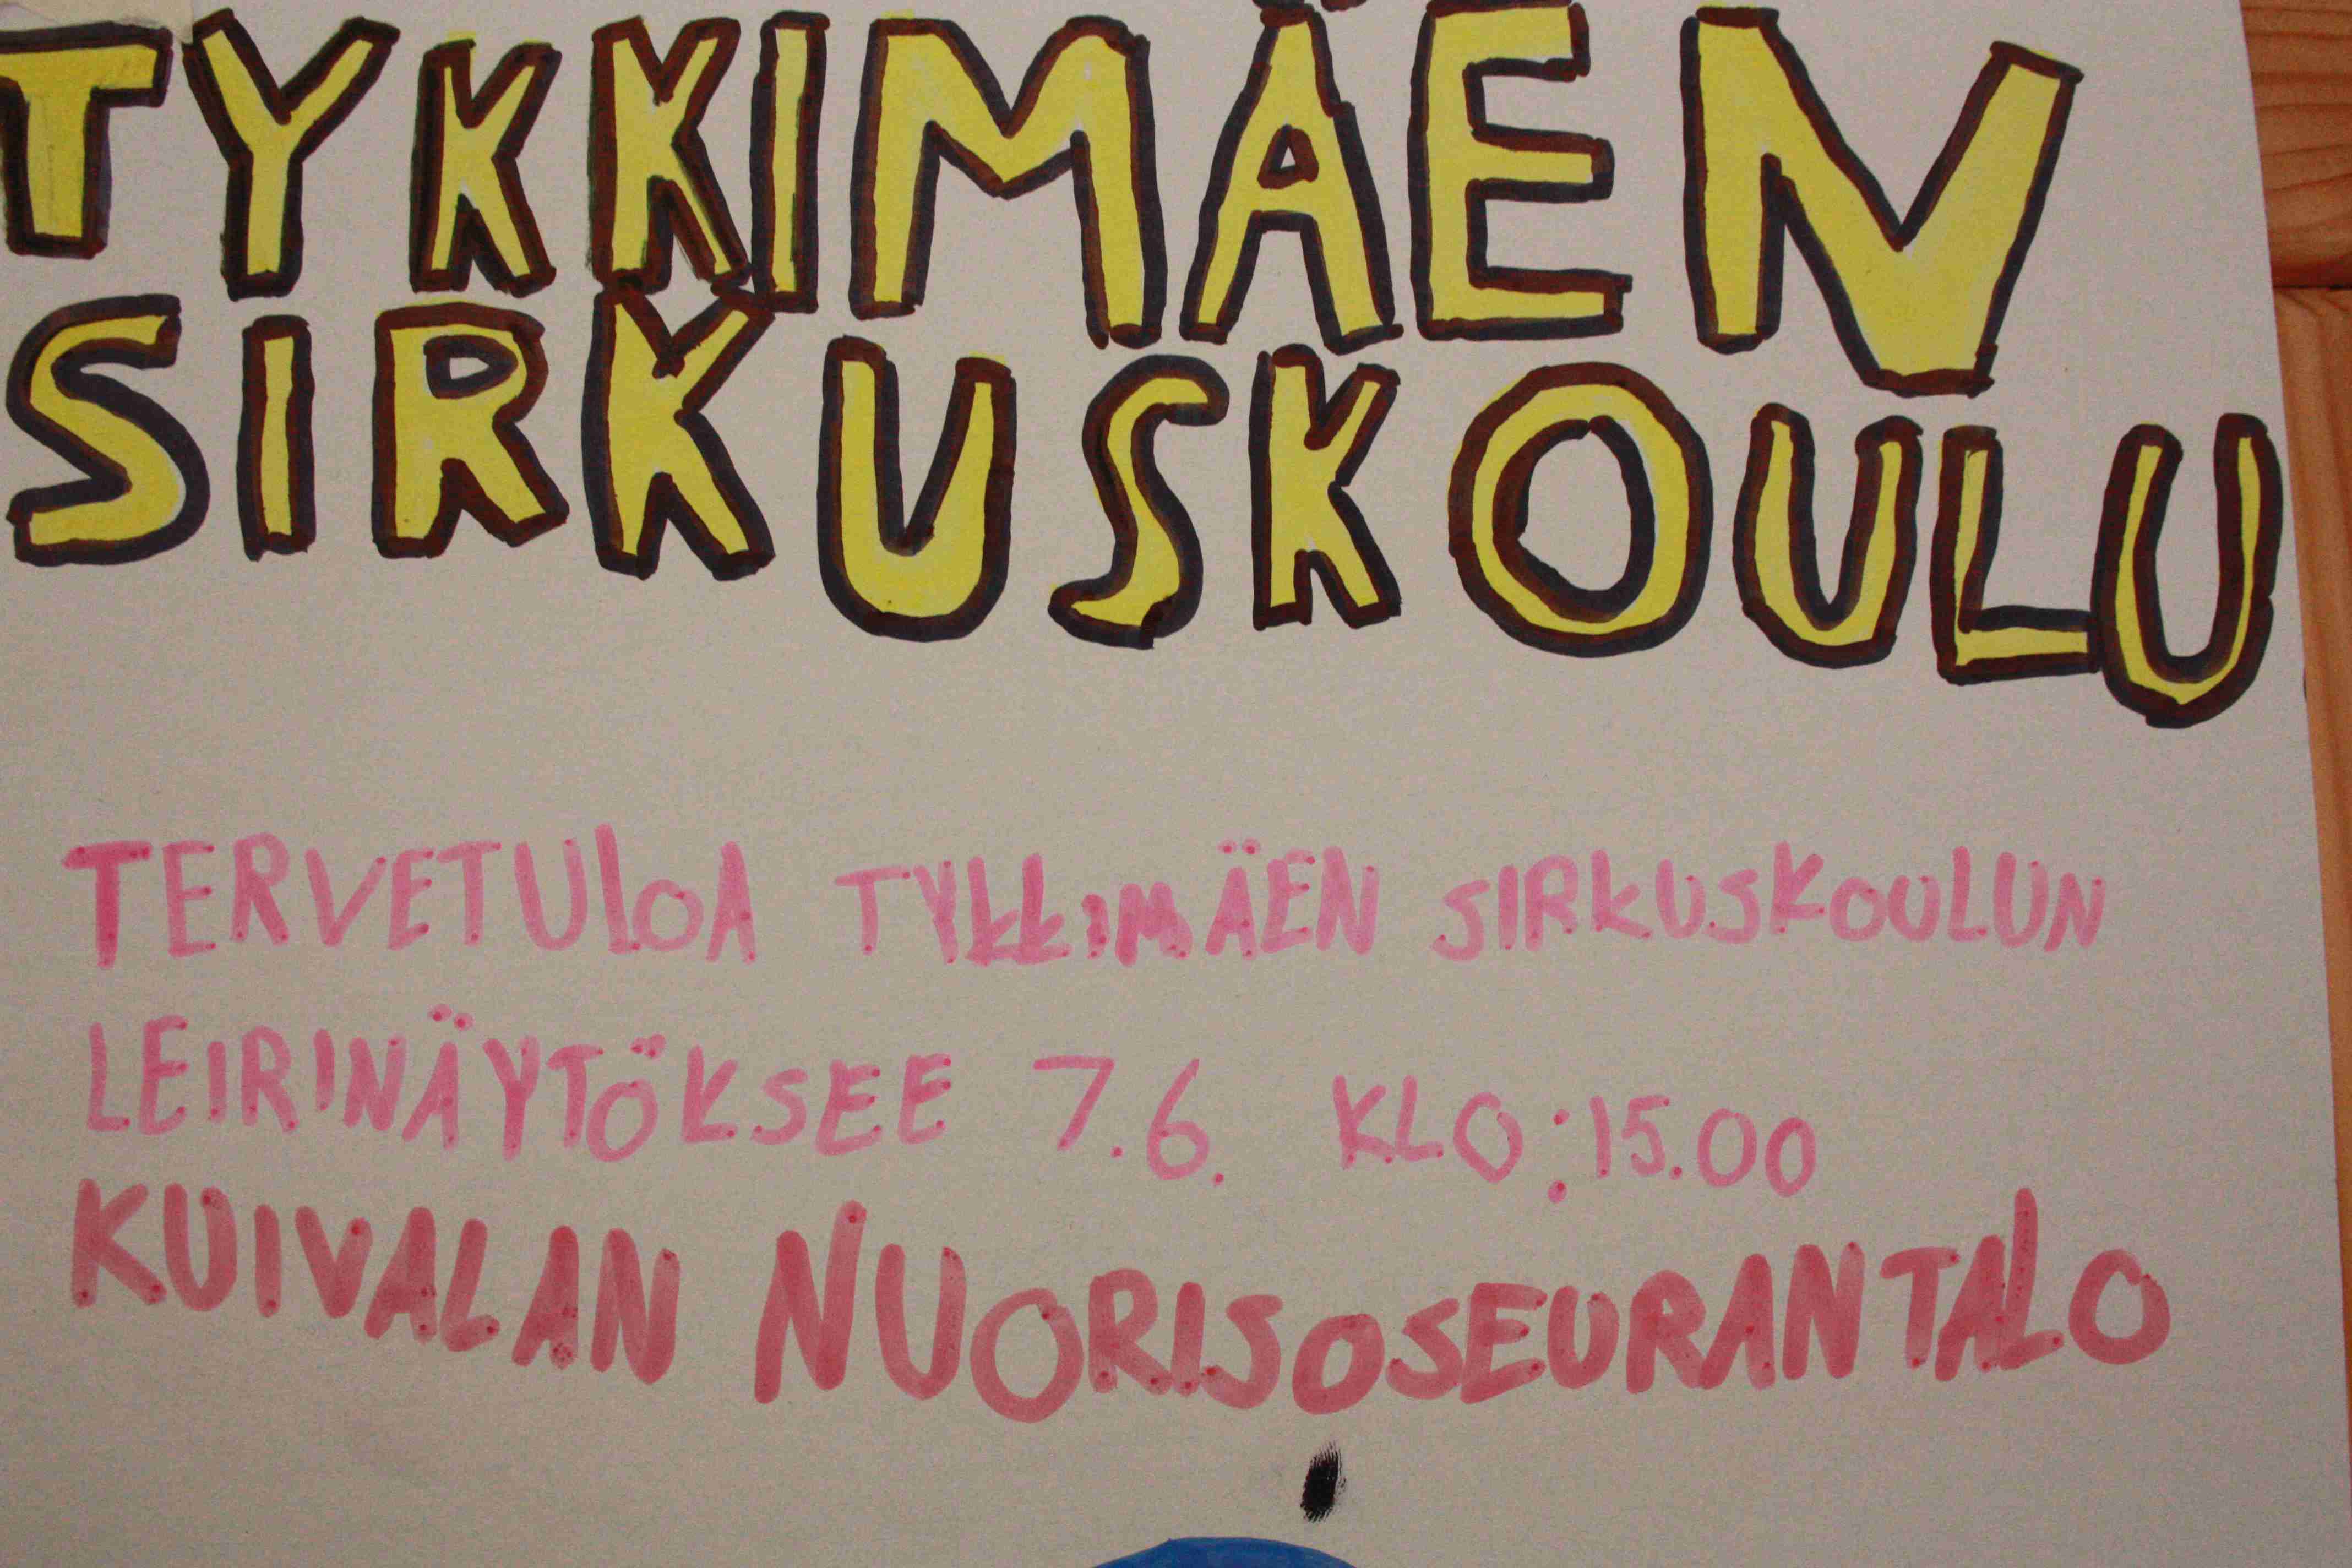 TYKKIMÄEN
SIRKUSKOULU
TERVETULOA TYKKIMÄEN SIRKUSKOULUN
LEIRINÄYTÖKSEE 7.6. KLO:15.00
KUIVALAN NUORISOSEURANTALO